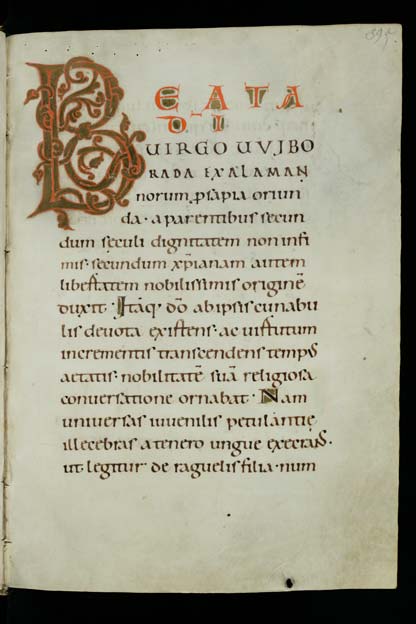 BEATA
DI
UIRGO UVJBO
RADA EXALAMAN
norum ꝓsapia oriun
da · a parentibus secun
dum seculi dignitatem non infi
mis · secundum xp̄ianam autem
libertatem nobilissimis originē
duxit · Itaq; dō ab ipsis cunabu
lis deuota existens · ac uirtutum
incrementis transcendens temp
aetatis · nobilitatē suā religiosa
conuersatione ornabat · Nam
uniuersas iuuenilis petulantię
illecebras a tenero ungue
ut legitur de raguelis filia · num